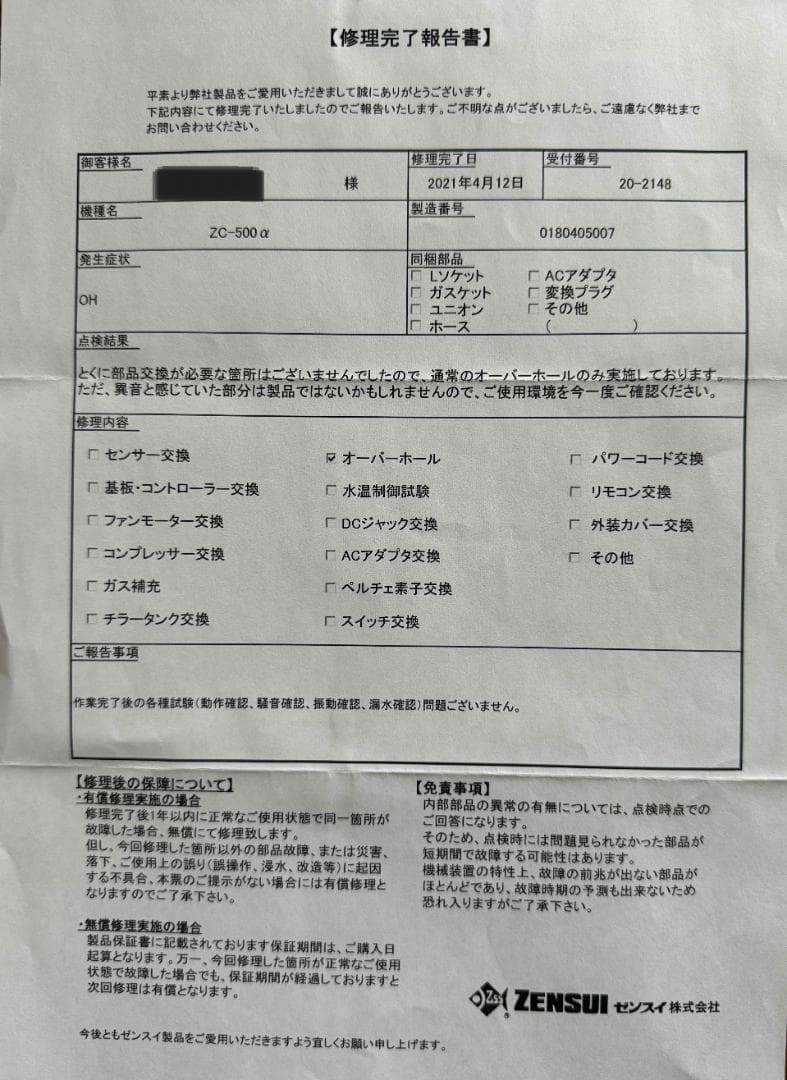 【修理完了報告書】
平素より弊社製品をご愛用いただきまして誠にありがとうございます。
下記内容にて修理完了いたしましたのでご報告いたします。ご不明な点がございましたら、ご遠慮なく弊社まで
お問い合わせください。
御客様名
様
修理完了日
2021年4月12日
受付番号
20-2148
機種名
ZC-500α
製造番号
0180405007
発生症状
OH
同梱部品
□ Lソケット □ ACアダプタ
□ ガスケット □ 変換プラグ
□ ユニオン □ その他
□ ホース ( )
点検結果
とくに部品交換が必要な箇所はございませんでしたので、通常のオーバーホールのみ実施しております。
ただ、異音と感じていた部分は製品ではないかもしれませんので、ご使用環境を今一度ご確認ください。
修理内容
□ センサー交換 ☑ オーバーホール □ パワーコード交換
□ 基板・コントローラー交換 □ 水温制御試験 □ リモコン交換
□ ファンモーター交換 □ DCジャック交換 □ 外装カバー交換
□ コンプレッサー交換 □ ACアダプタ交換 □ その他
□ ガス補充 □ ペルチェ素子交換
□ チラータンク交換 □ スイッチ交換
ご報告事項
作業完了後の各種試験(動作確認、騒音確認、振動確認、漏水確認)問題ございません。
【修理後の保障について】
・有償修理実施の場合
修理完了後1年以内に正常なご使用状態で同一箇所が
故障した場合、無償にて修理致します。
但し、今回修理した箇所以外の部品故障、または災害、
落下、ご使用上の誤り(誤操作、浸水、改造等)に起因
する不具合、本票のご提示がない場合には有償修理と
なりますのでご了承下さい。
・無償修理実施の場合
製品保証書に記載されております保証期間は、ご購入日
起算となります。万一、今回修理した箇所が正常なご使用
状態で故障した場合でも、保証期間が経過しておりますと
次回修理は有償となります。
【免責事項】
内部部品の異常の有無については、点検時点での
ご回答になります。
そのため、点検時には問題見られなかった部品が
短期間で故障する可能性はあります。
機械装置の特性上、故障の前兆が出ない部品が
ほとんどであり、故障時期の予測も出来ないため
恐れ入りますがご了承下さい。
ZENSUI ゼンスイ株式会社
今後ともゼンスイ製品をご愛用いただきますよう宜しくお願い申し上げます。